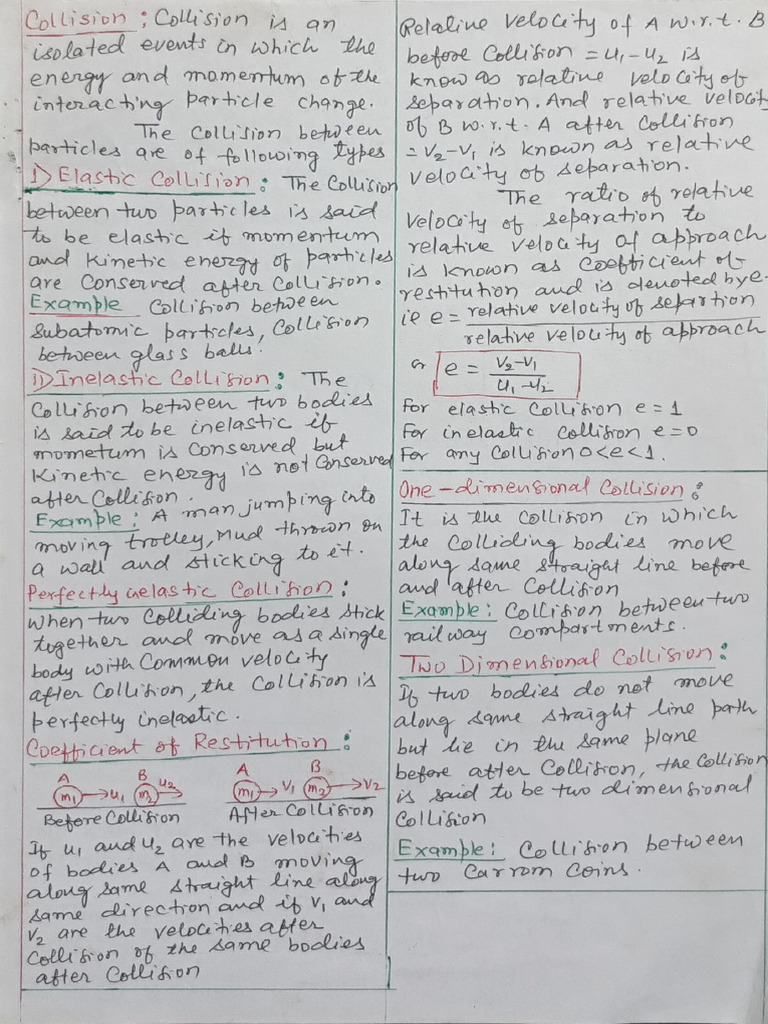 Collision : Collision is an
isolated events in which the
energy and momentum of the
interacting particle change.
The Collision between
particles are of following types
i) Elastic Collision : The Collision
between two particles is said
to be elastic if momentum
and Kinetic energy of particles
are Conserved after Collision.
Example Collision between
Subatomic particles, Collision
between glass balls.
ii) Inelastic Collision : The
Collision between two bodies
is said to be inelastic if
mometum is Conserved but
Kinetic energy is not Conserved
after Collision.
Example : A man jumping into
moving trolley, Mud thrown on
a wall and sticking to it.
Perfectly inelastic Collision :
When two Colliding bodies stick
together and move as a single
body with Common velocity
after Collision, the Collision is
perfectly inelastic.
Coefficient of Restitution :
A B A B
m₁ → u₁ m₂ u₂ → m₁ → v₁ m₂ → v₂
Before Collision After Collision
If u₁ and u₂ are the velocities
of bodies A and B moving
along same straight line along
same direction and if v₁ and
v₂ are the velocities after
Collision of the same bodies
after Collision
Relative velocity of A w.r.t. B
before Collision = u₁-u₂ is
know as relative velocity of
separation. And relative velocity
of B w.r.t. A after Collision
= v₂-v₁ is known as relative
velocity of separation.
The ratio of relative
velocity of separation to
relative velocity of approach
is known as Coefficient of
restitution and is denoted by e.
ie e = relative velocity of separtion
relative velocity of approach
or e = v₂-v₁
u₁-u₂
For elastic Collision e = 1
For inelastic Collision e = 0
For any Collision 0<e<1.
One-dimensional Collision :
It is the Collision in which
the Colliding bodies move
along same straight line before
and after Collision
Example : Collision between two
railway Compartments.
Two Dimensional Collision :
If two bodies do not move
along same straight line path
but lie in the same plane
before after Collision, the Collision
is said to be two dimensional
Collision
Example : Collision between
two Carrom Coins.